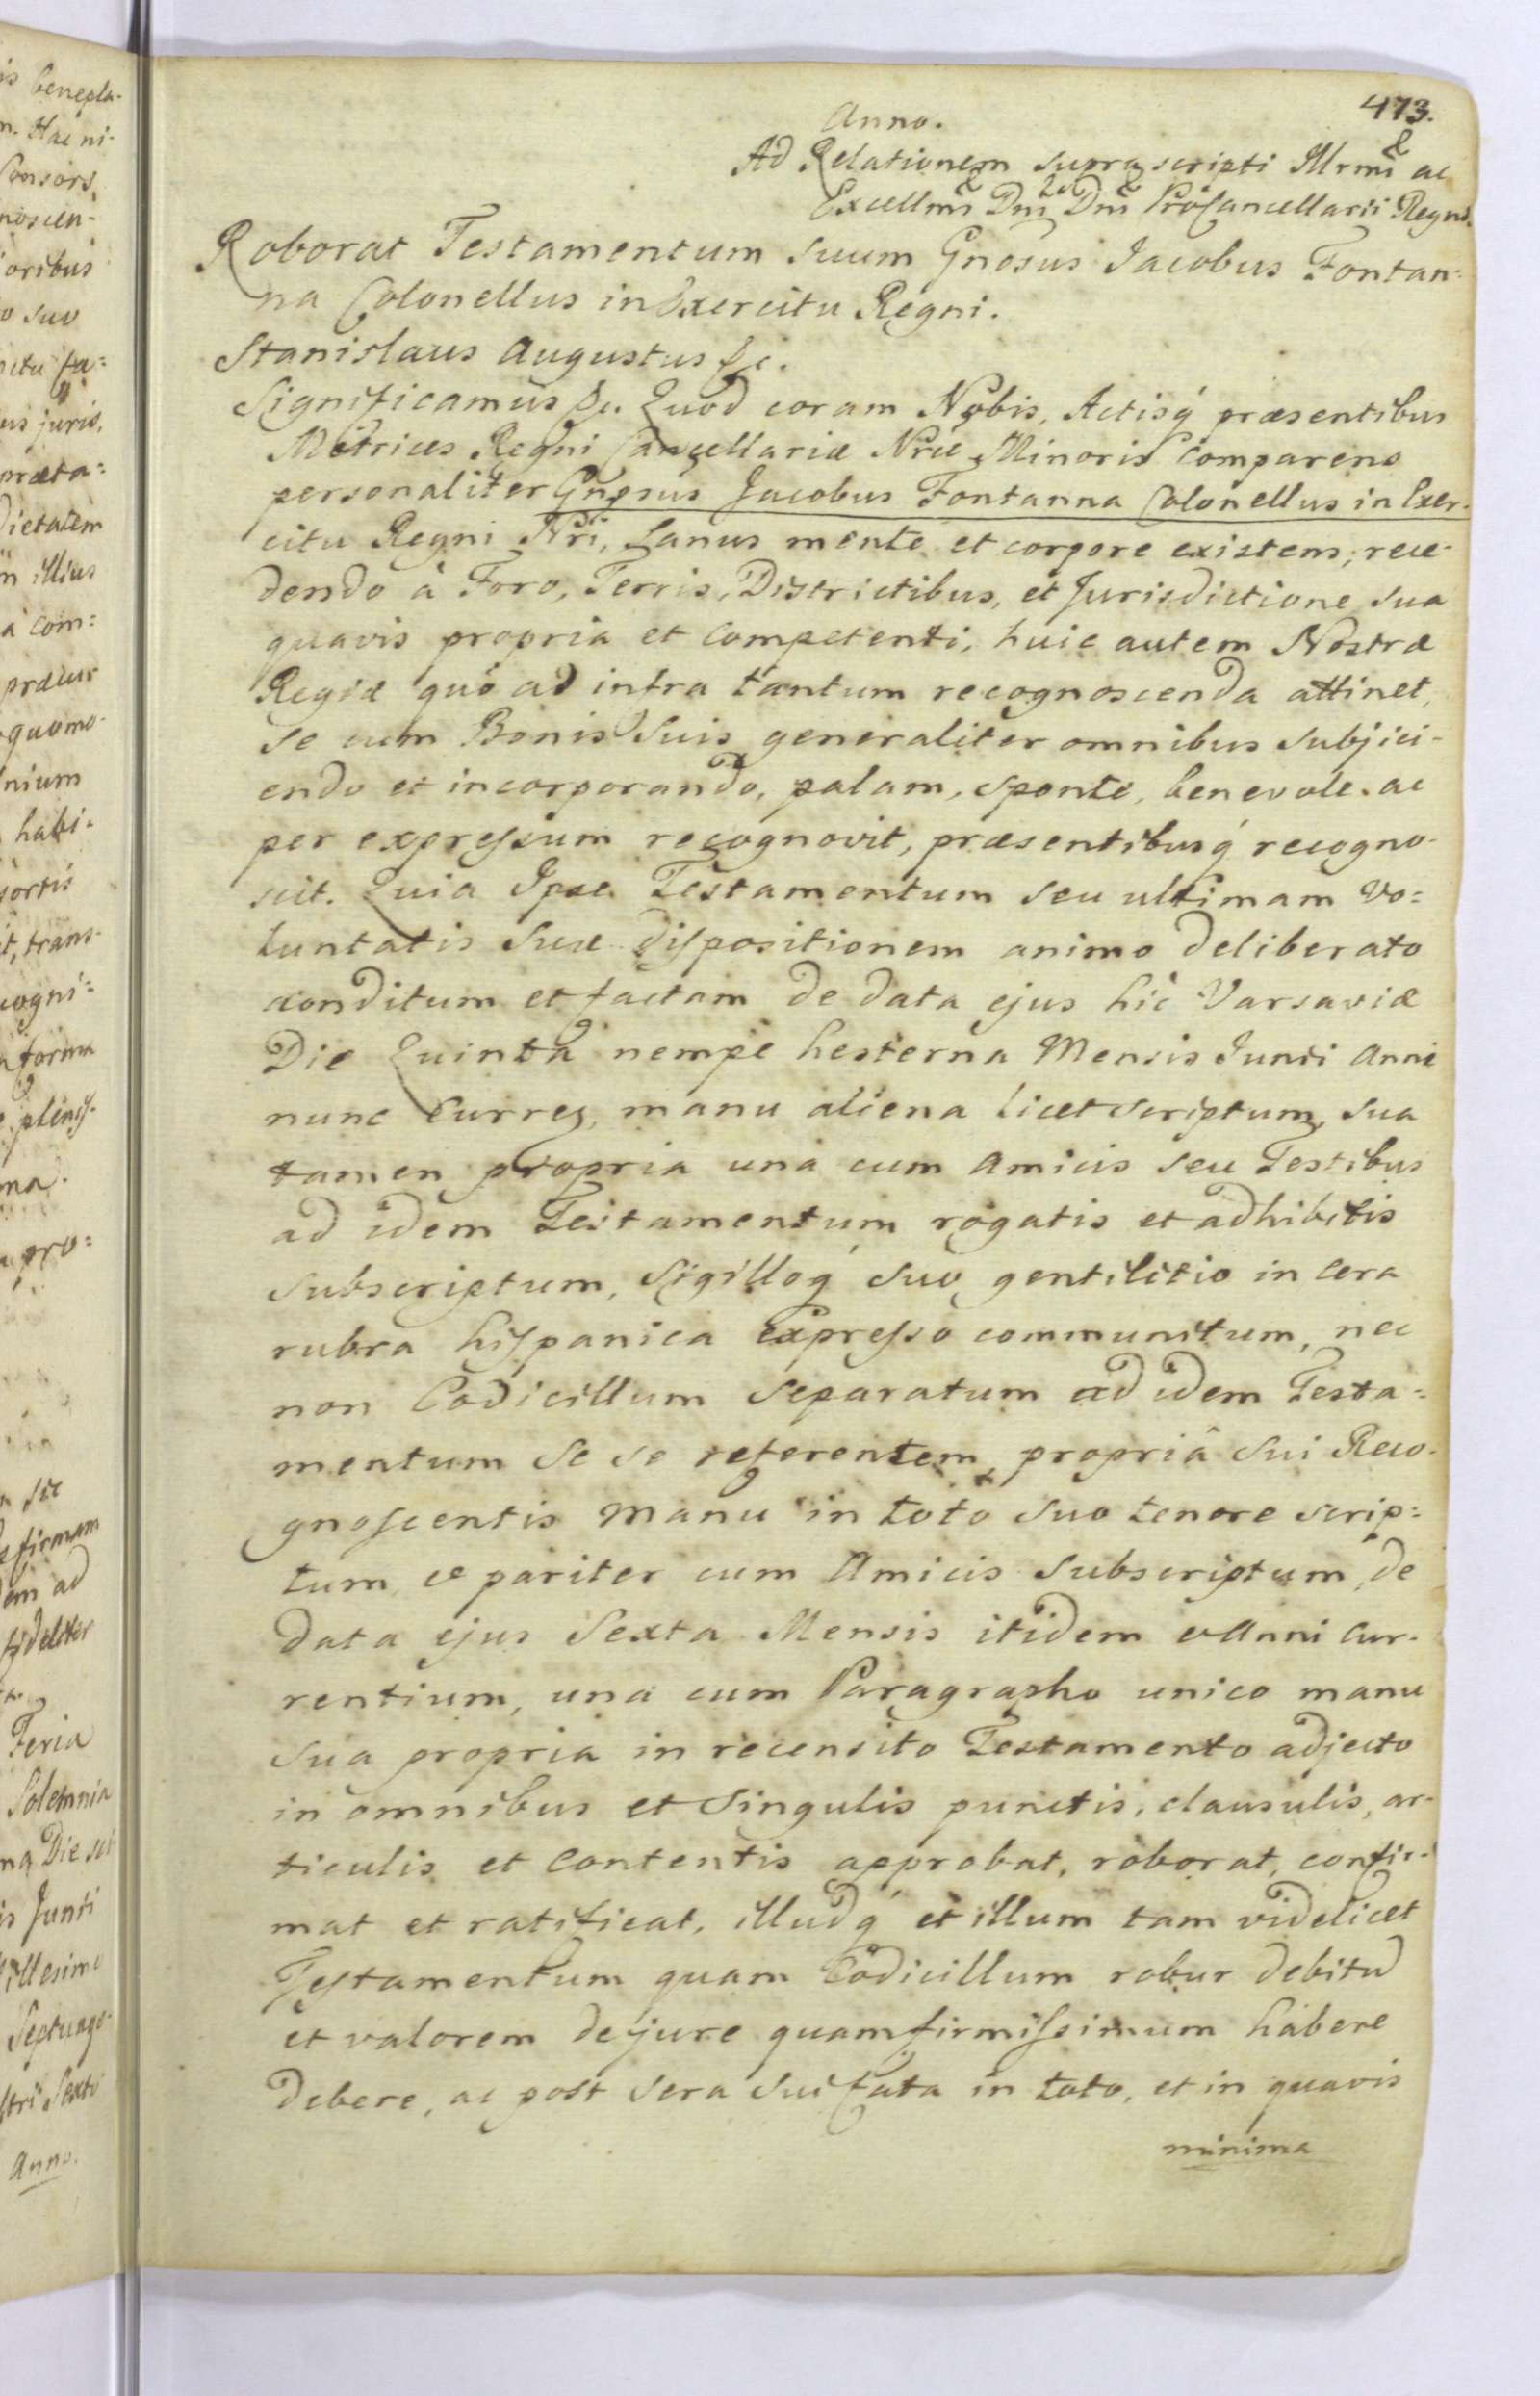 473.
Anno.
Ad Relationem suprascripti Illrmi ac
Excellmi Dni Dni ProCancellarii Regni.
Roborat Testamentum suum Gnosus Jacobus Fontan:
na Colonellus in Exercitu Regni.
Stanislaus Augustus &c.
Significamus &c. Quod coram Nobis, Actisq́ præsentibus
Metrices Regni Cancellariæ Nræ Minoris Comparens
personaliter Gnosus Jacobus Fontanna Colonellus in Exer-
citu Regni Nri, Sanus mente et corpore existens, rece-
dendo à Foro, Terris, Districtibus, et Jurisdictione sua
quavis propria et Competenti, huic autem Nostræ
Regiæ quo ad infra tantum recognoscenda attinet,
se cum Bonis suis generaliter omnibus subjici-
endo et incorporando, palam, sponte, benevole. ac
per expressum recognovit, præsentibusq́ recogno-
scit. Quia Ipse Testamentum seu ultimam Vo:
luntatis suæ dispositionem animo deliberato
conditum et factam de data ejus hic Varsaviæ
Die Quinta nempe hesterna Mensis Junii Anni
nunc Curren, manu aliena licet scriptum, sua
tamen propria una cum Amicis seu Testibus
ad idem Testamentum rogatis et adhibitis
subscriptum, Sigilloq́ suo gentilitio in cera
rubra hispanica expresso communitum, nec
non Codicillum separatum ad idem Testa:
mentum se se referentem propriâ sui Reco-
gnoscentis manu in toto suo tenore scrip:
tum, et pariter cum Amicis subscriptum, de
data ejus Sexta Mensis itidem et Anni Cur-
rentium, una cum Paragrapho unico manu
sua propria in recensito Testamento adjecto
in omnibus et singulis punctis, clausulis, ar-
ticulis et Contentis approbat, roborat, confir-
mat et ratificat, illudq́ et illum tam videlicet
Testamentum quam Codicillum robur debitū
et valorem de jure quam firmissimum habere
debere, ac post sera sui fata in toto, et in quavis
minima